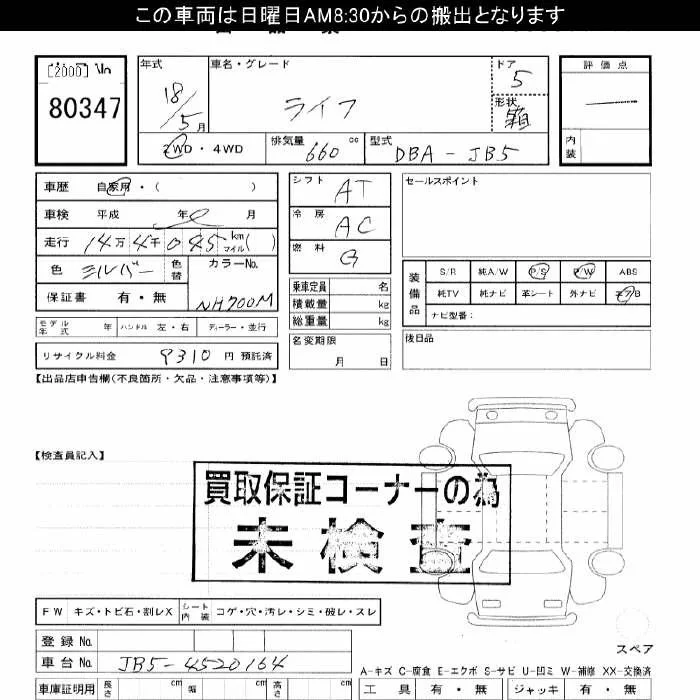 この車両は日曜日AM8:30からの搬出となります
[2000] No
80347
年式 18/5月
車名・グレード ライフ
ドア 5
形状 箱
評価点
内装
2WD・4WD
排気量 660 cc
型式 DBA-JB5
車歴 自家用・( )
車検 平成 年 月
走行 14万 4千 045 km マイル( )
色 シルバー 色替
カラーNo. NH700M
保証書 有・無
モデル年式 年 ハンドル 左・右 ディーラー・並行
リサイクル料金 9310 円 預託済
シフト AT
冷房 AC
燃料 G
乗車定員 名
積載量 kg
総重量 kg
名変期限 月 日
セールスポイント
装備品 S/R 純A/W P/S P/W ABS
純TV 純ナビ 革シート 外ナビ エア/B
ナビ型番:
後日品
【出品店申告欄(不良箇所・欠品・注意事項等)】
【検査員記入】
買取保証コーナーの為
未検査
FW キズ・トビ石・割レX シート内装 コゲ・穴・汚レ・シミ・破レ・スレ
登録No
車台No JB5-4520164
車庫証明用 長さ cm 幅 cm 高さ cm
スペア
A-キズ C-腐食 E-エクボ S-サビ U-凹ミ W-補修 XX-交換済
工具 有・無 ジャッキ 有・無